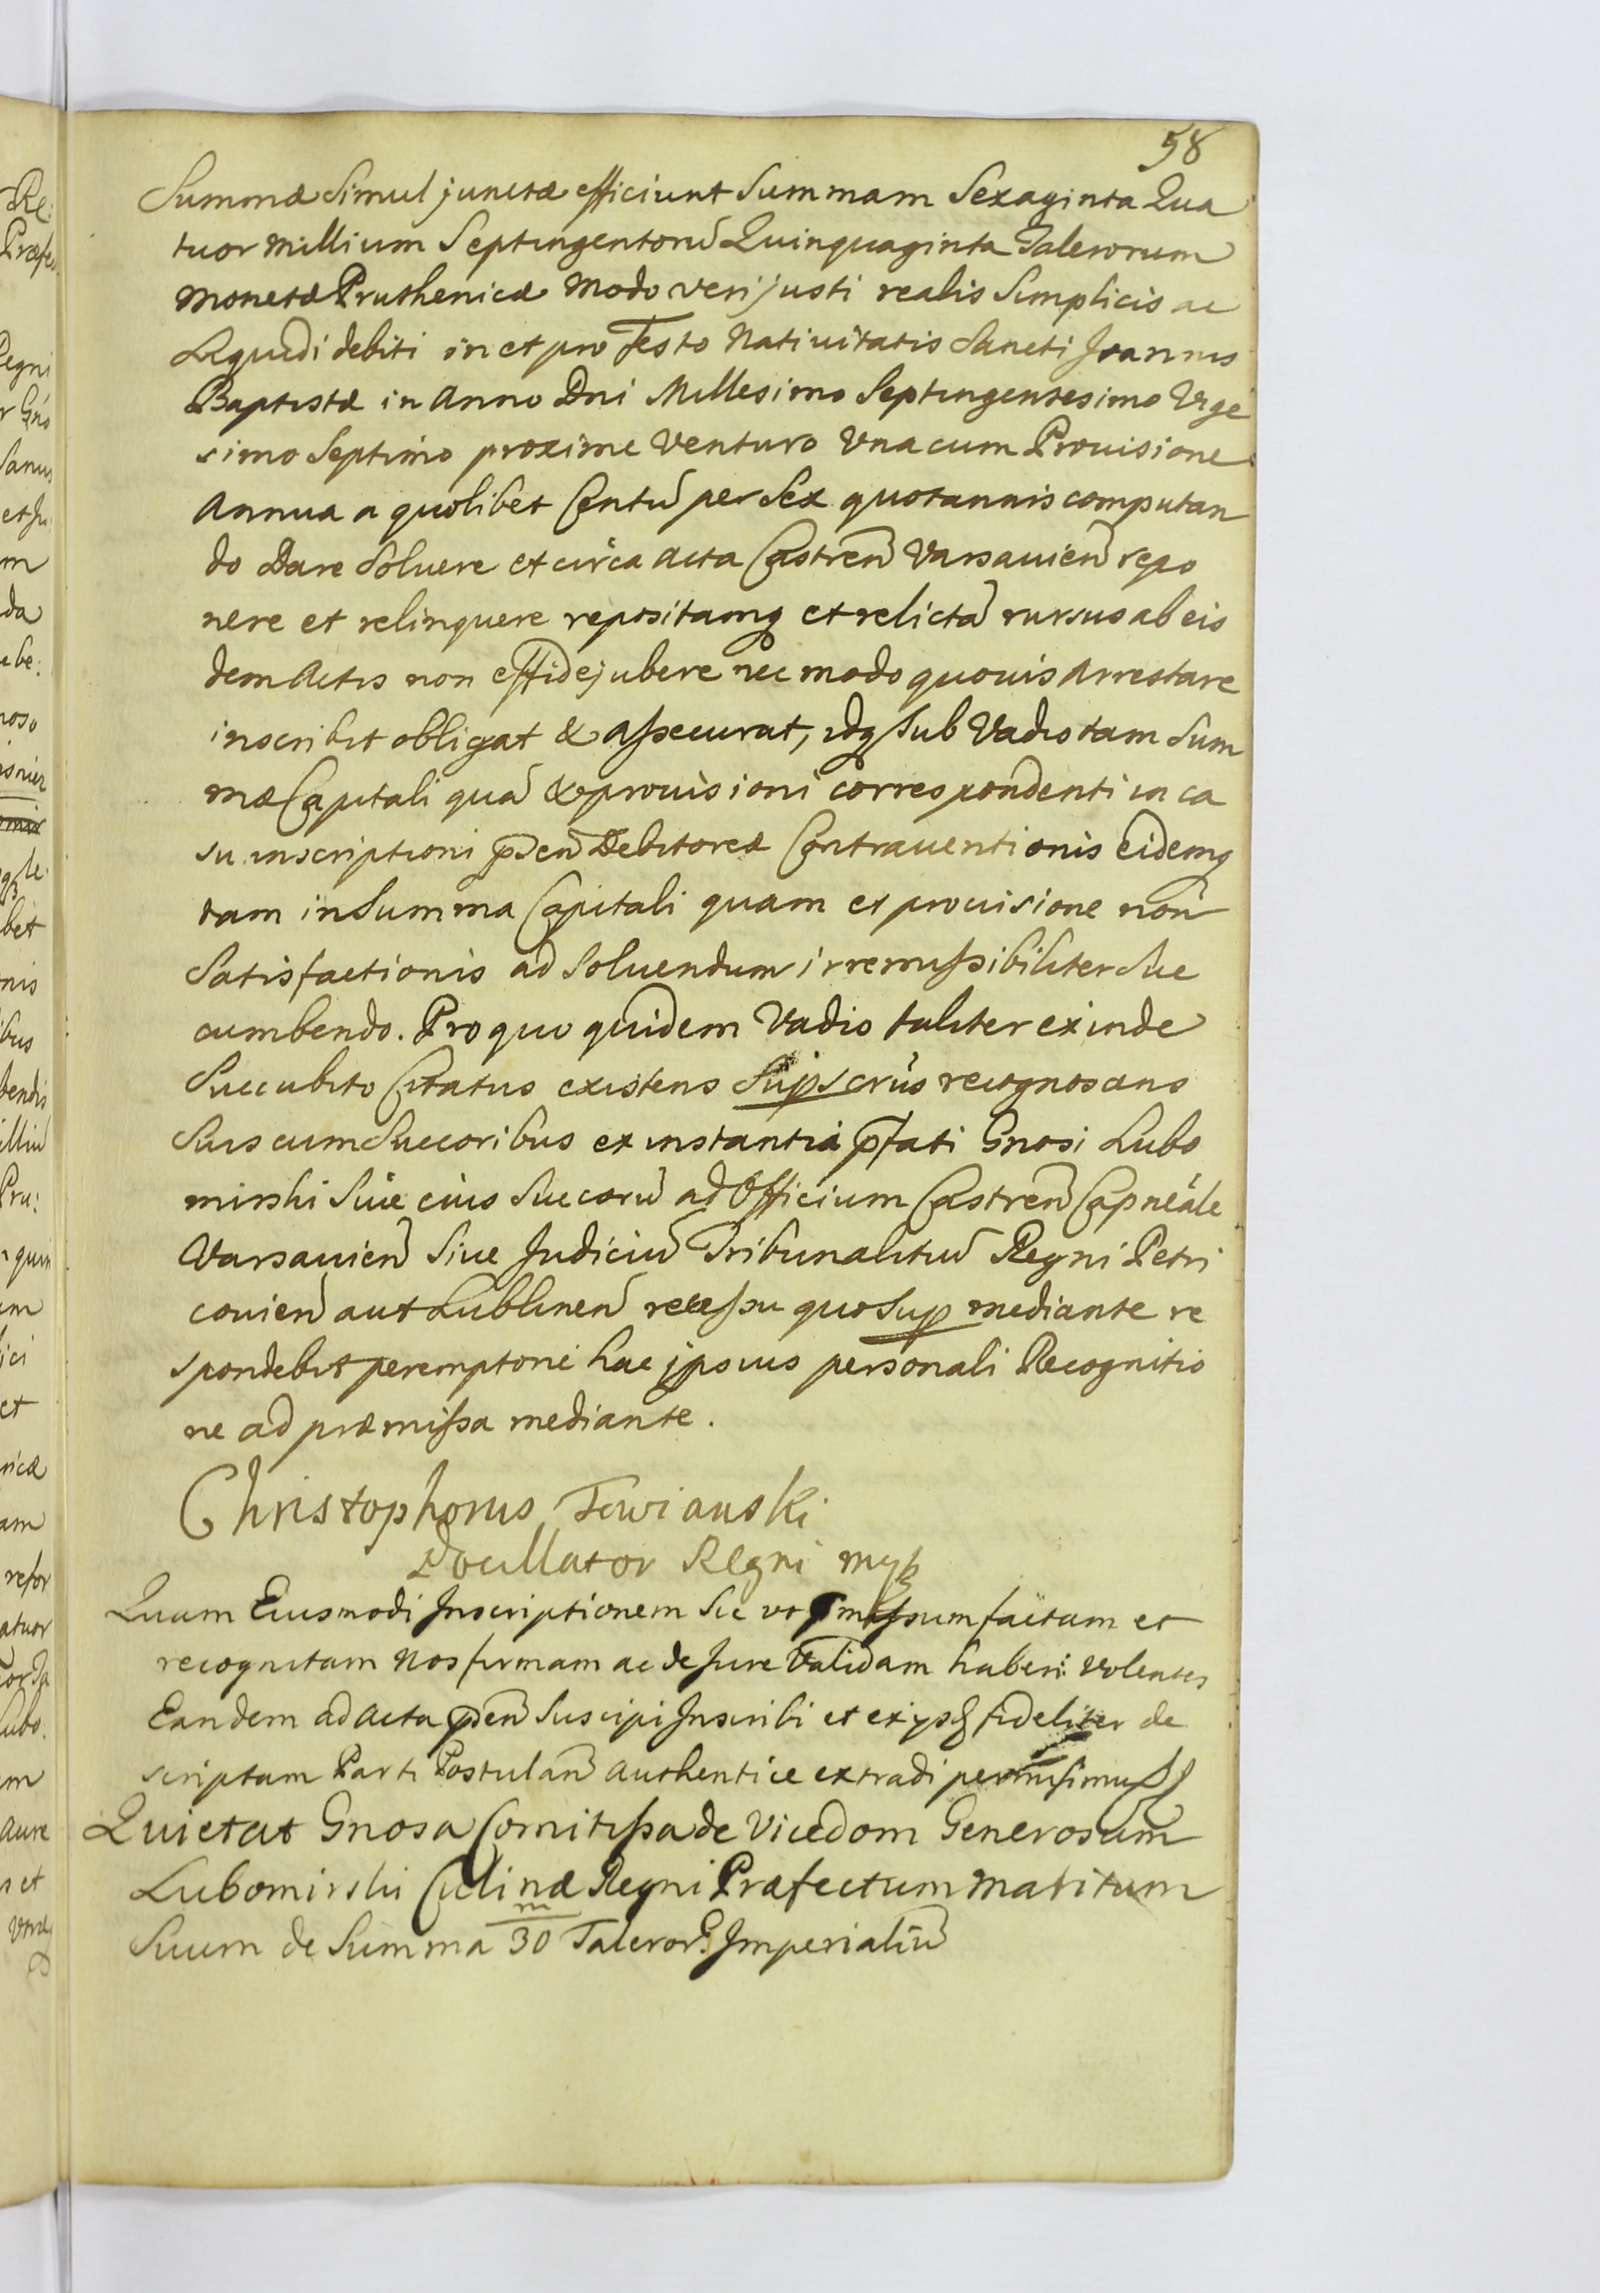 58
Summæ Simul junctæ efficiunt Summam Sexaginta Qua
tuor Millium Septingentorũ Quinquaginta Talerorum
Monetæ Pruthenicæ Modo veri justi realis Simplicis ac
Liquidi debiti in et pro Festo Nativitatis Sancti Joannis
Baptistæ in Anno Dni Millesimo Septingentesimo Vige
simo Septimo proxime Venturo Vna cum Prouisione
Annua a quolibet Centũ per Sex quotannis computan
do Dare Soluere et circa acta Castreñ Varsauieñ repo
nere et relinquere repositamq et relictã rursus ab eis
dem Actis non effidejubere nec modo quouis Arrestare
inscribit obligat & assecurat, idq sub Vadio tam Sum
mæ Capitali quã & prouisioni correspondenti in ca
su inscriptioni pñseñ Debitoreæ Contrauentionis eidemq
tam in Summa Capitali quam et prouisione non
Satisfactionis ad Soluendum irremissibiliter Suc
cumbendo. Pro quo quidem Vadio taliter exinde
Succubito Citatus existens Supscrius recognoscans
Suis cum Succoribus ex instantia pfati Gnosi Lubo
mirski Siue eius Succorũ ad Officium Castreñ Capneale
Varsauieñ Siue Judiciũ Tribunalitiũ Regni Petri
couieñ aut Lublineñ recessu quo Sup mediante re
spondebit peremptorie hac ipsius personali Recognitio
ne ad præmissa mediante.
Christophorus Towianski
Regni mp
Quam Eiusmodi Inscriptionem Sic vt pmissum factam et
recognitam Nos firmam ac de Jure Validam haberi Volentes
Eandem ad Acta pñseñ Suscipi Inscribi et ex ijsd fideliter de
scriptam Parti Postulañ authentice extradi permisimus
Quietat Gnosa Comitissa de Vicedom Generosum
Lubomirski Culinæ Regni Præfectum Maritum
m
Suum de Summa 30 Taleror Imperialiũ